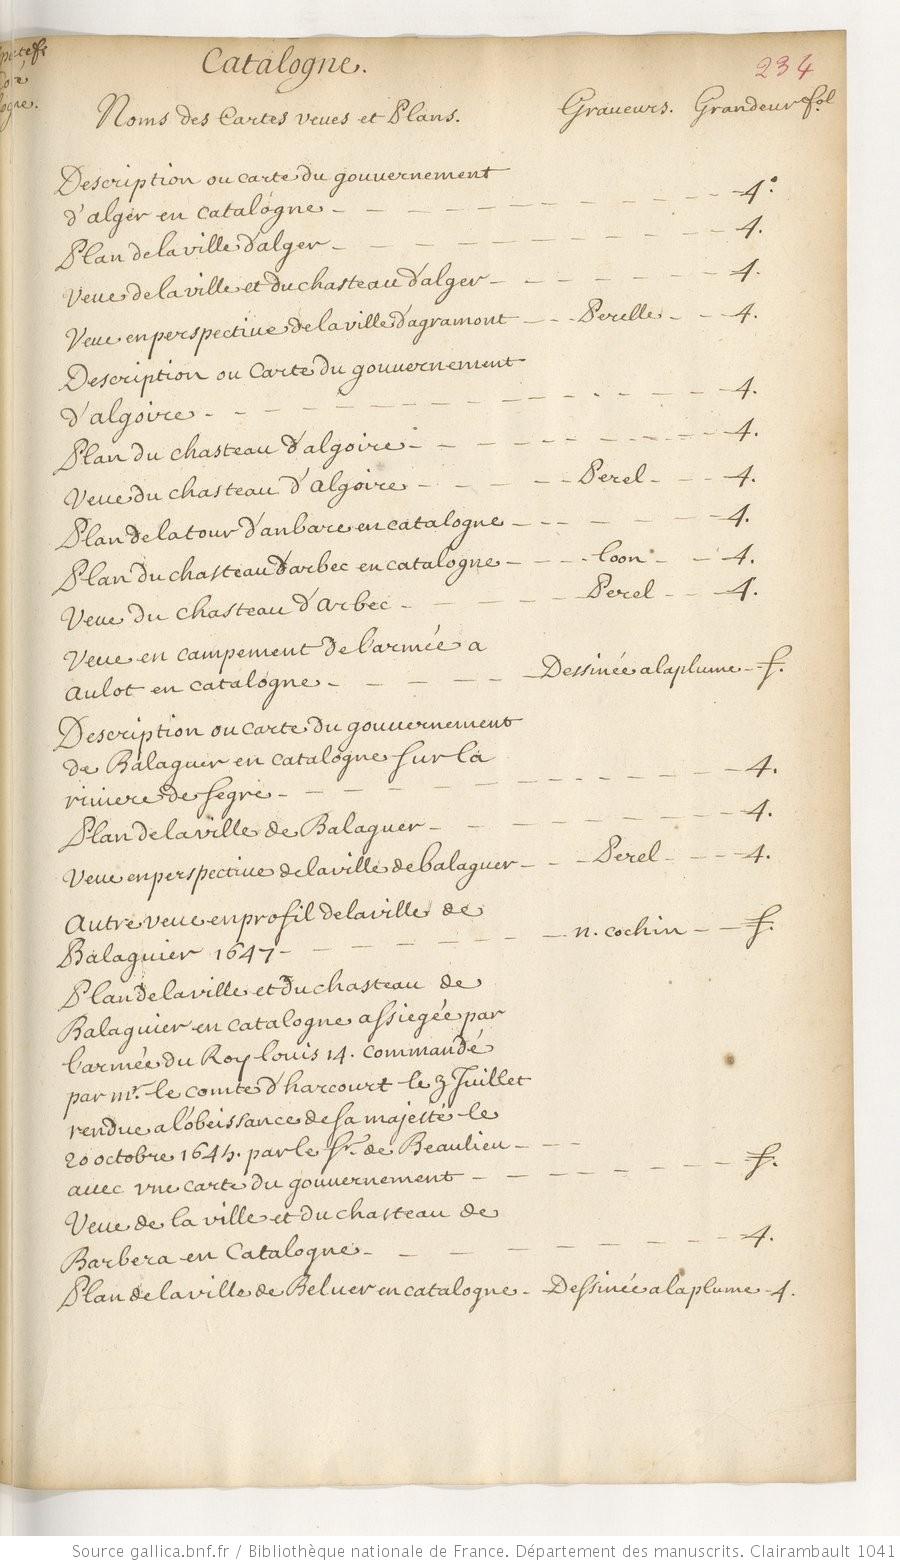 Catalogne.
234
Noms des Cartes veues et Plans. Graueurs. Grandeur fol
Description ou carte du gouuernement
d'alger en catalogne - 4°.
Plan de la ville d'alger - 4.
Veue de la ville et du chasteau d'alger - 4.
Veue en perspectiue de la ville d'agramont - Perelle - 4.
Description ou Carte du gouuernement
d'algoire - 4.
Plan du chasteau d'algoire - 4.
Veue du chasteau d'Algoire - Perel - 4.
Plan de la tour d'anbare en catalogne - 4.
Plan du chasteau d'arbec en catalogne - Coon - 4.
Veue du chasteau d'Arbec - Perel - 4.
Veue en campement de l'armée a
Aulot en catalogne - Dessinée a la plume - f.
Description ou carte du gouuernement
de Balaguier en catalogne sur la
riuiere de segre - 4.
Plan de la ville de Balaguer - 4.
Veue en perspectiue de la ville de balaguer - Perel - 4.
Autre veue en profil de la ville de
Balaguier 1647 - n. cochin - f.
Plan de la ville et du chasteau de
Balaguier en catalogne assiegée par
l'armée du Roy louis 14. commandé
par mr. le comte d'harcourt le 3 Juillet
rendue a l'obeissance de sa majesté le
20 octobre 1645. par le Sr. de Beaulieu -
auec vne carte du gouuernement - f.
Veue de la ville et du chasteau de
Barbera en Catalogne - 4.
Plan de la ville de Beluer en catalogne - Dessinée a la plume - 4.
Source gallica.bnf.fr / Bibliothèque nationale de France. Département des manuscrits. Clairambault 1041